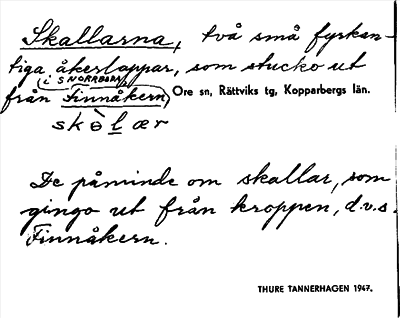 Skallarna, två små fyrkan-
tiga åkerlappar, som stucko ut
i S NORRBODA
från Finnåkern, Ore sn, Rättviks tg, Kopparbergs län.
skòlær
De påminde om skallar, som
gingo ut från kroppen, d.v.s.
Finnåkern.
THURE TANNERHAGEN 1947.